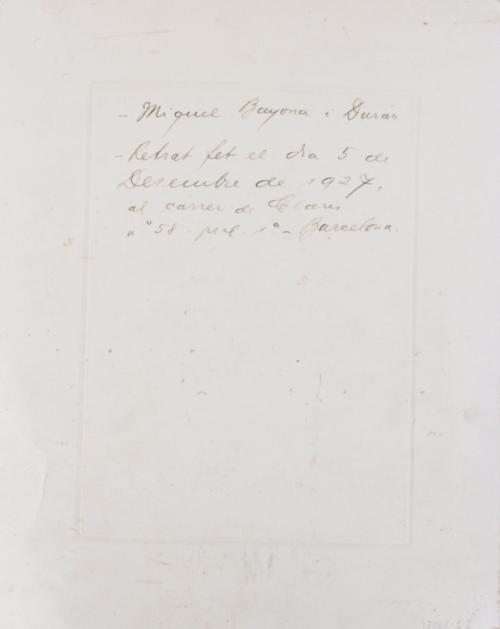 - Miquel Bayona i Durán
- Retrat fet el dia 5 de
Desembre de 1927,
al carrer de Claris
nº 58. pral. 1ª - Barcelona.